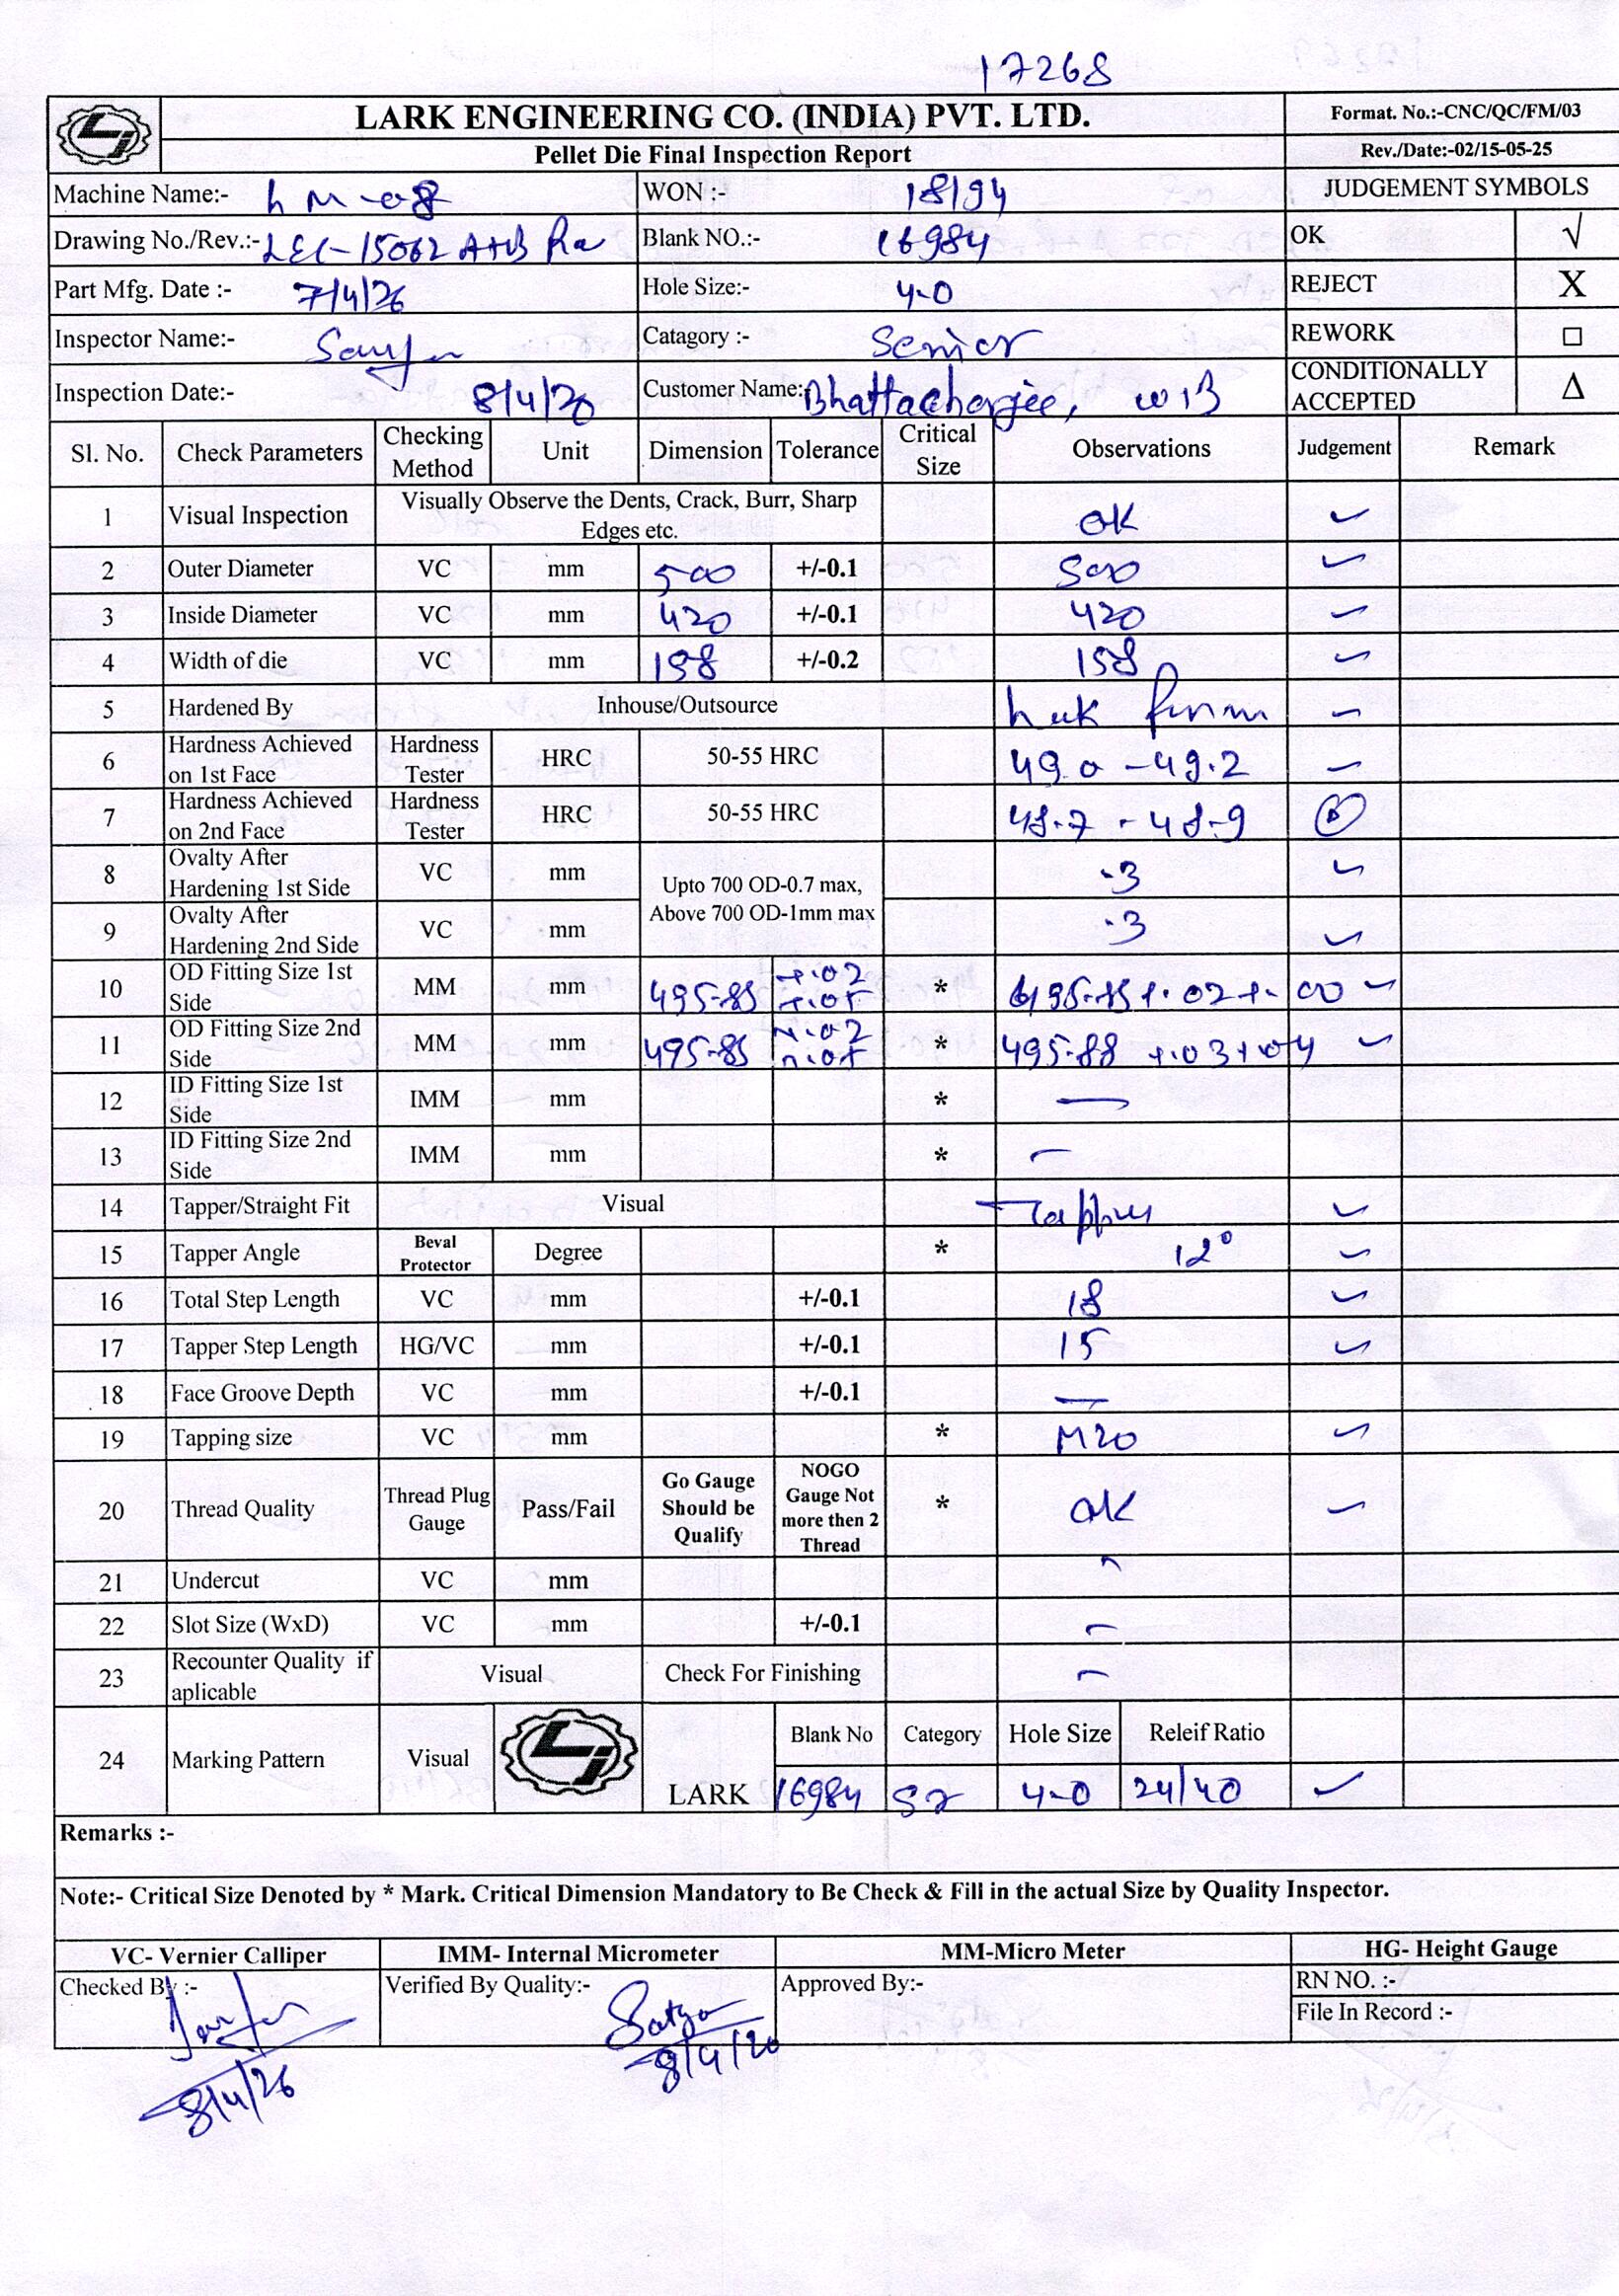 17268
LARK ENGINEERING CO. (INDIA) PVT. LTD.
Format. No.:-CNC/QC/FM/03
Pellet Die Final Inspection Report
Rev./Date:-02/15-05-25
Machine Name:- LM-08 WON :- 18194 JUDGEMENT SYMBOLS
Drawing No./Rev.:- LEC-15062 A+B Blank NO.:- 16984 OK √
Part Mfg. Date :- 7/4/26 Hole Size:- 4.0 REJECT X
Inspector Name:- Catagory :- Senior REWORK □
Inspection Date:- 8/4/26 Customer Name: Bhattacharjee, WB CONDITIONALLY ACCEPTED Δ
Sl. No. Check Parameters Checking Method Unit Dimension Tolerance Critical Size Observations Judgement Remark
1 Visual Inspection Visually Observe the Dents, Crack, Burr, Sharp Edges etc. OK ✓
2 Outer Diameter VC mm 500 +/-0.1 500 ✓
3 Inside Diameter VC mm 420 +/-0.1 420 ✓
4 Width of die VC mm 158 +/-0.2 158 ✓
5 Hardened By Inhouse/Outsource ✓
6 Hardness Achieved on 1st Face Hardness Tester HRC 50-55 HRC 49.0 - 49.2 ✓
7 Hardness Achieved on 2nd Face Hardness Tester HRC 50-55 HRC 48.7 - 48.9
8 Ovalty After Hardening 1st Side VC mm Upto 700 OD-0.7 max, Above 700 OD-1mm max .3 ✓
9 Ovalty After Hardening 2nd Side VC mm .3 ✓
10 OD Fitting Size 1st Side MM mm 495.85 +.02 * ✓
11 OD Fitting Size 2nd Side MM mm 495.85 * 495.88 +.03+.04 ✓
12 ID Fitting Size 1st Side IMM mm * —
13 ID Fitting Size 2nd Side IMM mm * —
14 Tapper/Straight Fit Visual Tapper ✓
15 Tapper Angle Beval Protector Degree * 12° ✓
16 Total Step Length VC mm +/-0.1 18 ✓
17 Tapper Step Length HG/VC mm +/-0.1 15 ✓
18 Face Groove Depth VC mm +/-0.1 —
19 Tapping size VC mm * M20 ✓
20 Thread Quality Thread Plug Gauge Pass/Fail Go Gauge Should be Qualify NOGO Gauge Not more then 2 Thread * OK ✓
21 Undercut VC mm —
22 Slot Size (WxD) VC mm +/-0.1 —
23 Recounter Quality if aplicable Visual Check For Finishing —
24 Marking Pattern Visual LARK Blank No Category Hole Size Releif Ratio
16984 4.0 24/40 ✓
Remarks :-
Note:- Critical Size Denoted by * Mark. Critical Dimension Mandatory to Be Check & Fill in the actual Size by Quality Inspector.
VC- Vernier Calliper IMM- Internal Micrometer MM-Micro Meter HG- Height Gauge
Checked By :- Verified By Quality:- Satya Approved By:- RN NO. :-
File In Record :-
8/4/26 8/4/26